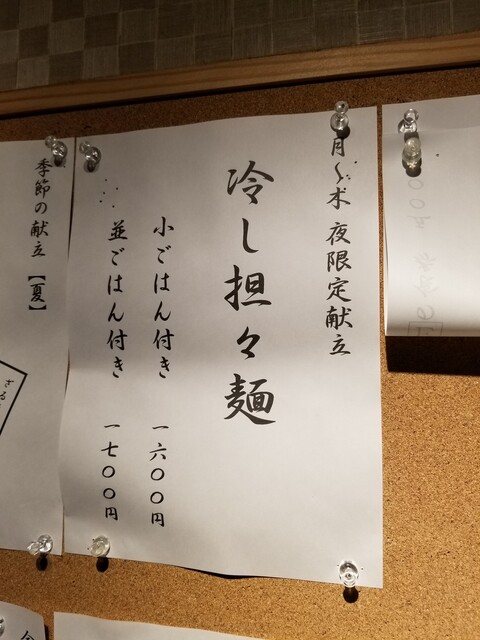 月〜木 夜限定献立
冷し担々麺
小ごはん付き 一六〇〇円
並ごはん付き 一七〇〇円
季節の献立【夏】
ざる